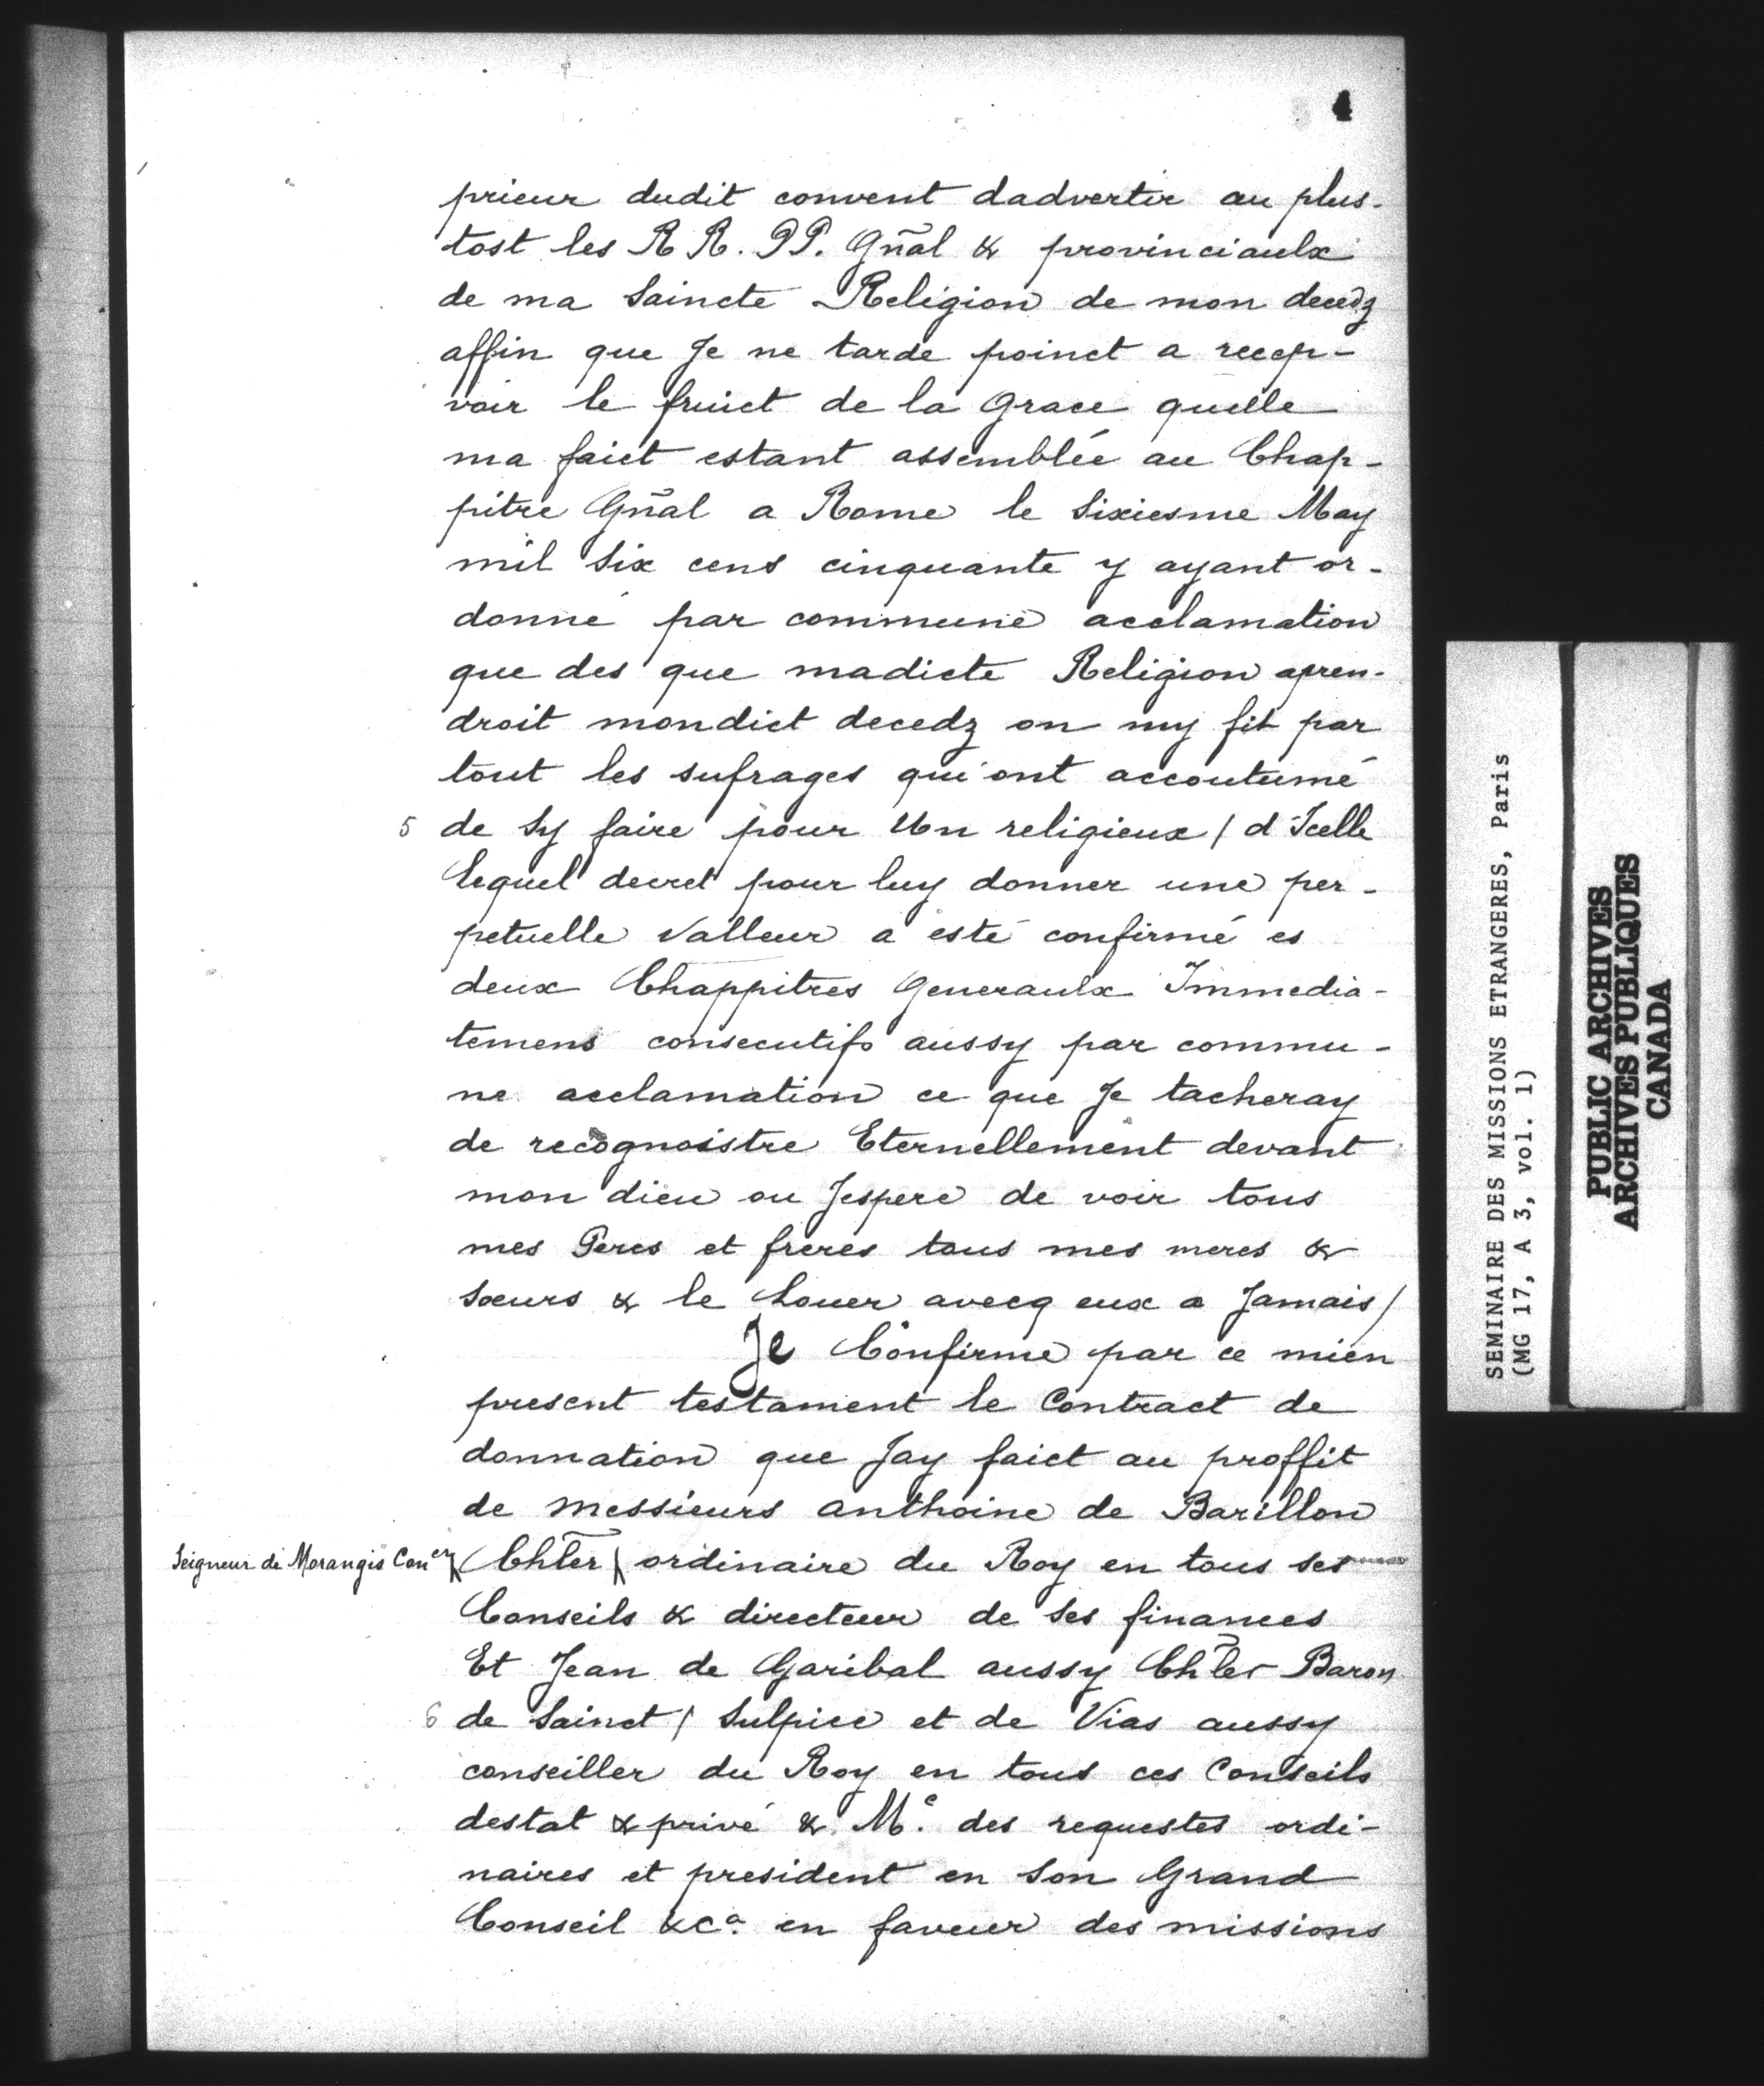 4
prieur dudit convent dadvertir au plus-
tost les R R. PP. Gñal & provinciaulx
de ma Saincte Religion de mon decedz
affin que Je ne tarde poinct a recep-
voir le fruict de la Grace quelle
ma faict estant assemblée au Chap-
pitre Gñal a Rome le Sixiesme May
mil Six cens cinquante y ayant or-
donné par commune acclamation
que des que madicte Religion apren-
droit mondict decedz on my fit par
tout les sufrages qui ont accoutumé
5 de sy faire pour Un religieux / d'Icelle
lequel decret pour luy donner une per-
petuelle valleur a esté confirmé es
deux Chappitres Generaulx Immedia-
temens consecutifs aussy par commu-
ne acclamation ce que Je tacheray
de recognoistre Eternellement devant
mon dieu ou Jespere de voir tous
mes Peres et freres tous mes meres &
Sœurs & le Louer avecq eux a Jamais /
Je Confirme par ce mien
present testament le Contract de
donnation que Jay faict au proffit
de messieurs anthoine de Barillon
Seigneur de Morangis Con^er Chl̃er ordinaire du Roy en tous ses
Conseils & directeur de ses finances
Et Jean de Garibal aussy Chl̃er Baron
6 de Sainct / Sulpice et de Vias aussy
conseiller du Roy en tous ces Conseils
destat & privé & M^e. des requestes ordi-
naires et president en Son Grand
Conseil &c^a. en faveur des missions
SEMINAIRE DES MISSIONS ETRANGERES, Paris
(MG 17, A 3, vol. 1)
PUBLIC ARCHIVES
ARCHIVES PUBLIQUES
CANADA